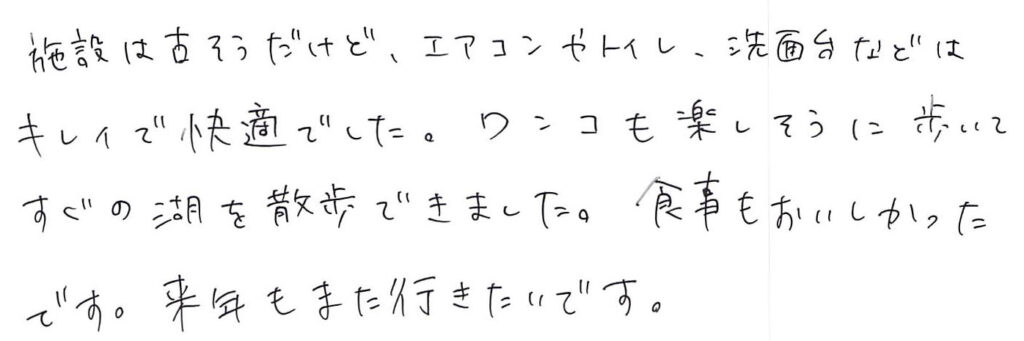 施設は古そうだけど、エアコンやトイレ、洗面台などは
キレイで快適でした。ワンコも楽しそうに歩いて
すぐの湖を散歩できました。食事もおいしかった
です。来年もまた行きたいです。